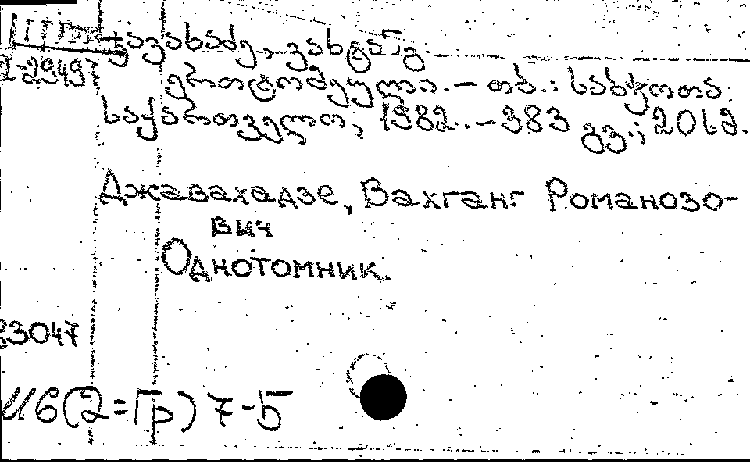 ჯავახაძე, ვახტანგ
2-29497
ერთტომეული. – თბ.: საბჭოთა
საქართველო, 1982. – 383 გვ.; 20სმ.
Джавахадзе, Вахтанг Романозо-
вич
Однотомник.
23047
И6(2=Гр)7-5